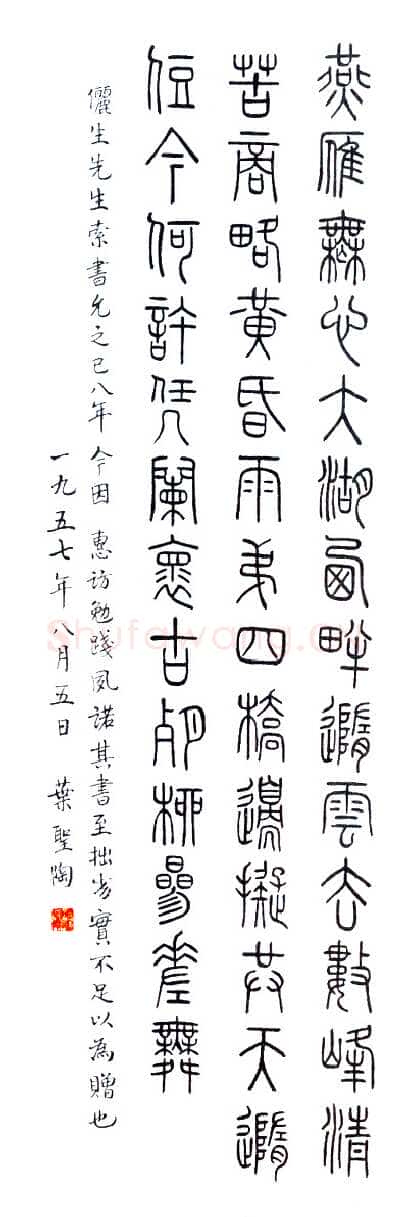 燕雁無心大湖西畔隨雲去數峰清
苦商略黃昏雨弟四橋邊擬共天隨
住今何許凭闌褱古殘柳參差舞
儷生先生索書允之已八年今因 惠訪勉踐夙諾其書至拙劣實不足以為贈也
一九五七年八月五日 葉聖陶
Shufawang.cn